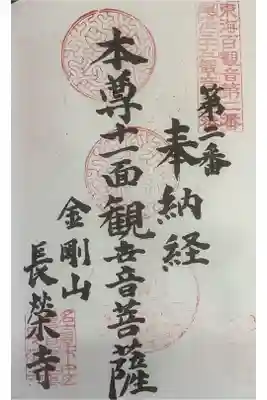 東海百観音第二番
第二番
奉納経
本尊十一面観世音菩薩
金剛山
長榮寺